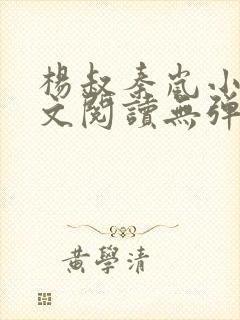 楊叔秦嵐小
文閱讀無彈
黃學清